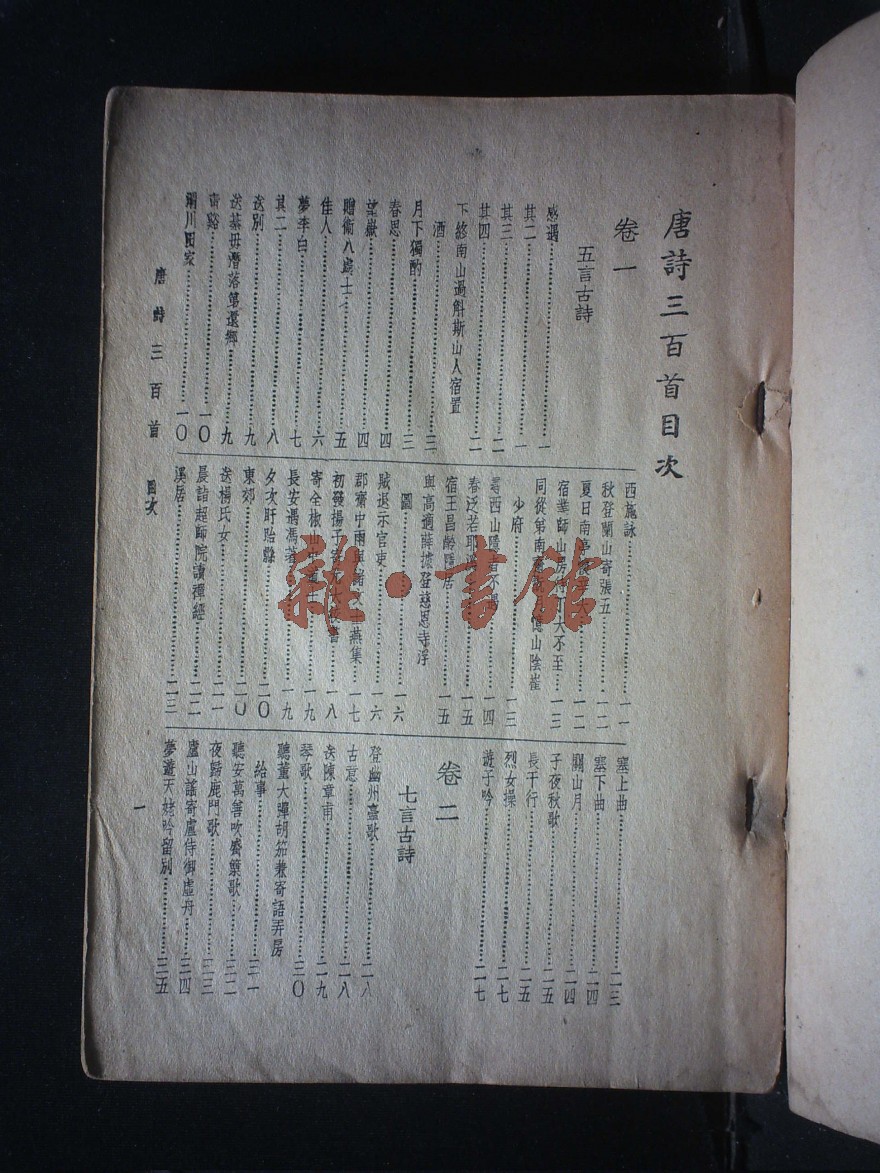 唐詩三百首目次
卷一
五言古詩
感遇一
其二一
其三二
其四二
下終南山過斛斯山人宿置
酒三
月下獨酌三
春思四
望嶽四
贈衞八處士五
佳人六
夢李白七
其二八
送別九
送綦毋潛落第還鄉九
青谿一〇
渭川田家一〇
西施詠一一
秋登蘭山寄張五一二
夏日南亭懷辛大一二
宿業師山房待丁大不至一三
同從弟南齋山陰崔
少府一三
尋西山隱者不遇一四
春泛若耶一五
宿王昌齡隱居一五
與高適薛據登慈恩寺浮
圖一六
賊退示官吏一六
郡齋中雨與諸燕集一七
初發揚子一八
寄全椒山一九
長安遇馮著一九
夕次盱眙縣二〇
東郊二〇
送楊氏女二一
晨詣超師院讀禪經二二
溪居二三
塞上曲二三
塞下曲二四
關山月二四
子夜秋歌二五
長干行二五
烈女操二七
遊子吟二七
卷二
七言古詩
登幽州臺歌二八
古意二八
送陳章甫二九
琴歌三〇
聽董大彈胡笳兼寄語弄房
給事三一
聽安萬善吹觱篥歌三二
夜歸鹿門歌三三
廬山謠寄盧侍御虛舟三四
夢遊天姥吟留別三五
唐詩三百首 目次
一
雜·書館